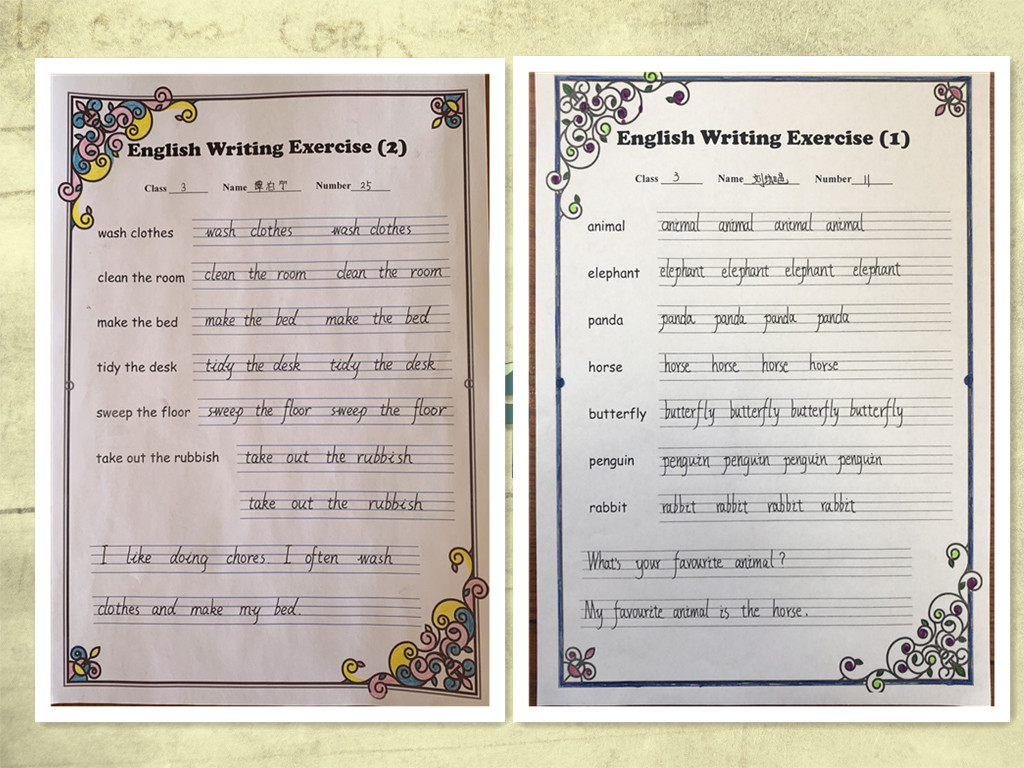 English Writing Exercise (2)
Class 3 Name Number 25
wash clothes wash clothes wash clothes
clean the room clean the room clean the room
make the bed make the bed make the bed
tidy the desk tidy the desk tidy the desk
sweep the floor sweep the floor sweep the floor
take out the rubbish take out the rubbish
take out the rubbish
I like doing chores. I often wash
clothes and make my bed.
English Writing Exercise (1)
Class 3 Name Number 11
animal animal animal animal animal
elephant elephant elephant elephant elephant
panda panda panda panda panda
horse horse horse horse horse
butterfly butterfly butterfly butterfly butterfly
penguin penguin penguin penguin penguin
rabbit rabbit rabbit rabbit rabbit
What's your favourite animal?
My favourite animal is the horse.